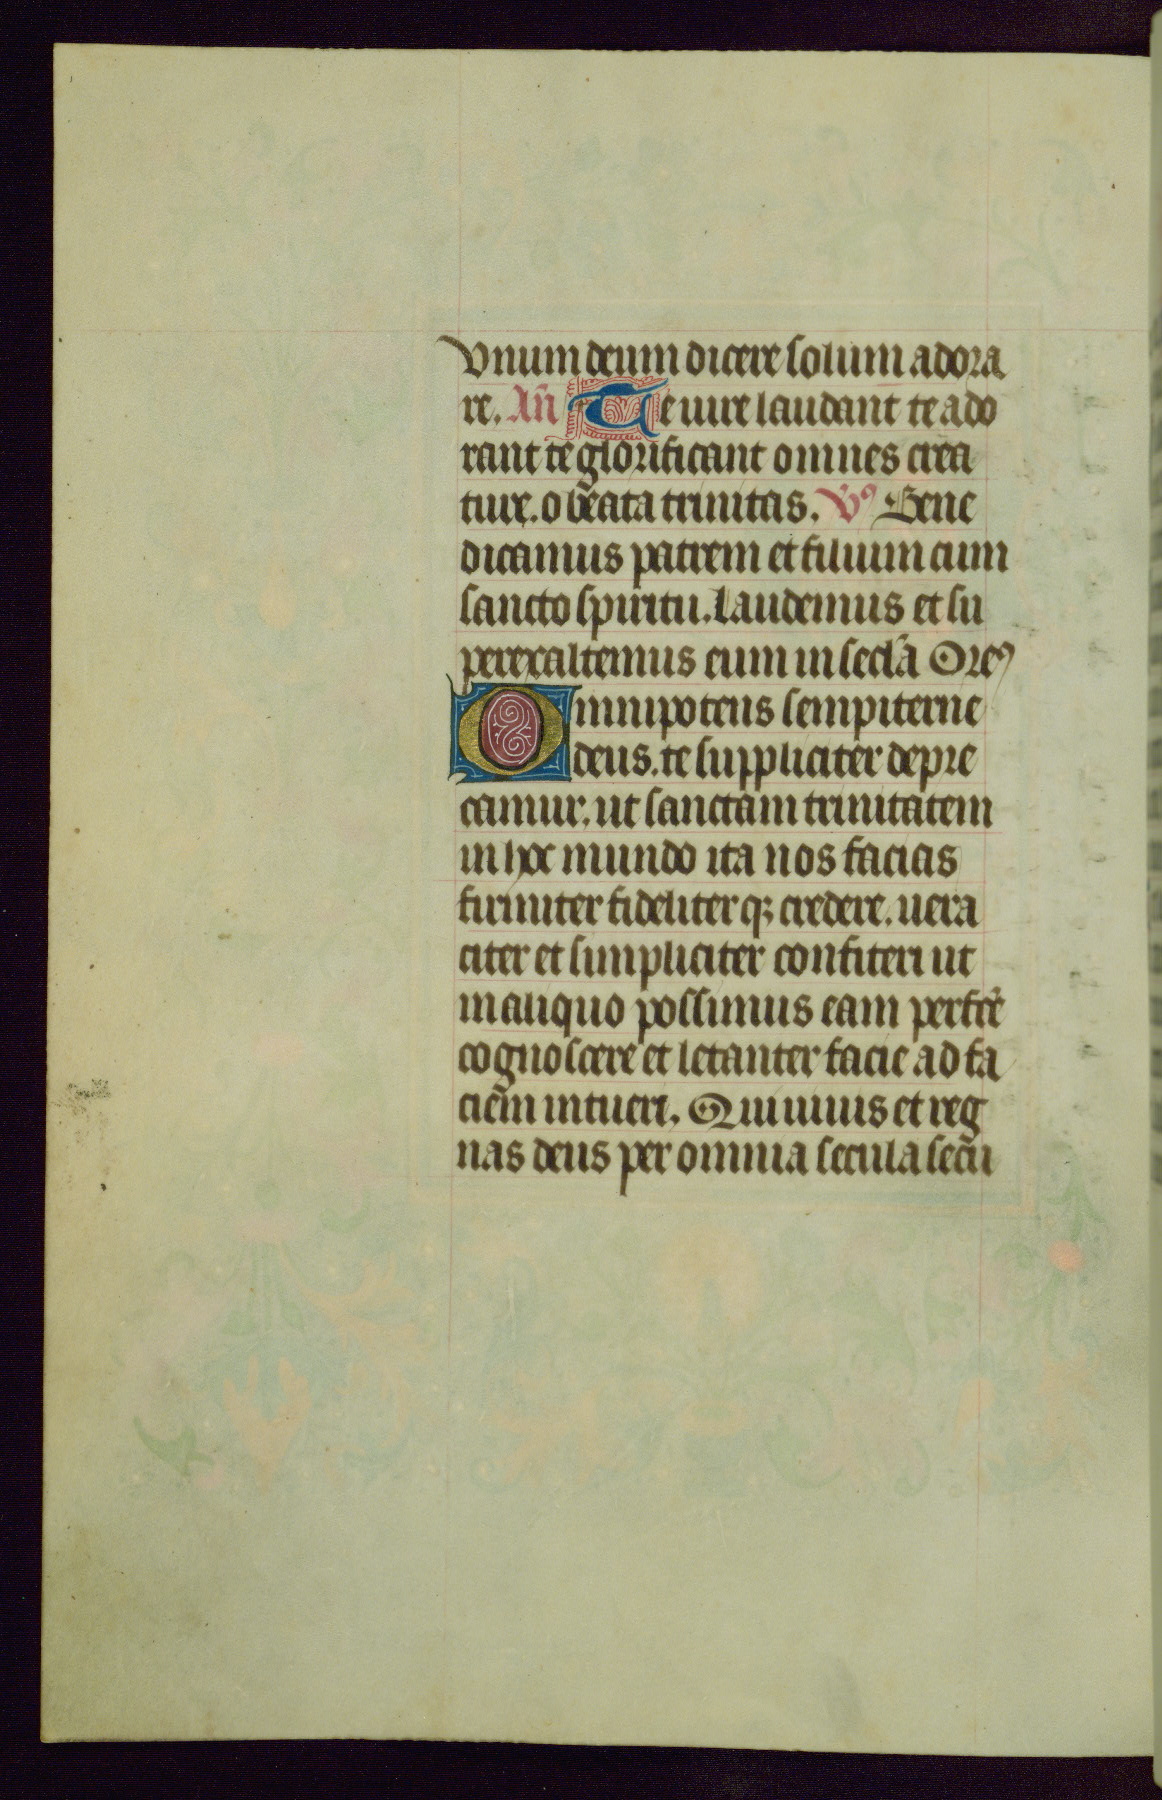 vnum deum dicere solum adora
re. Añ Te iure laudant te ado
rant te glorificant omnes crea
ture. o bẽata trinitas. V⁹ Bene
dicamus patrem et filium cum
sancto spiritu. Laudemus et su
perexaltemus eum in secl̃a Ore⁹
Omnipotens sempiterne
deus. te suppliciter depre
camur. ut sanctam trinitatem
in hoc mundo ita nos facias
firmiter fideliter qꝫ credere. uera
citer et simpliciter confiteri ut
in aliquo possimus eam perfcẽ
cognoscere et letanter facie ad fa
ciẽm intueri. Qui uiuis et reg
nas deus per omnia secula secũ